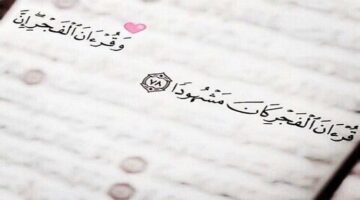 وَقُرْءَانَ ٱلْفَجْرِ ۖ إِنَّ
قُرْءَانَ ٱلْفَجْرِ كَانَ مَشْهُودًا ٧٨